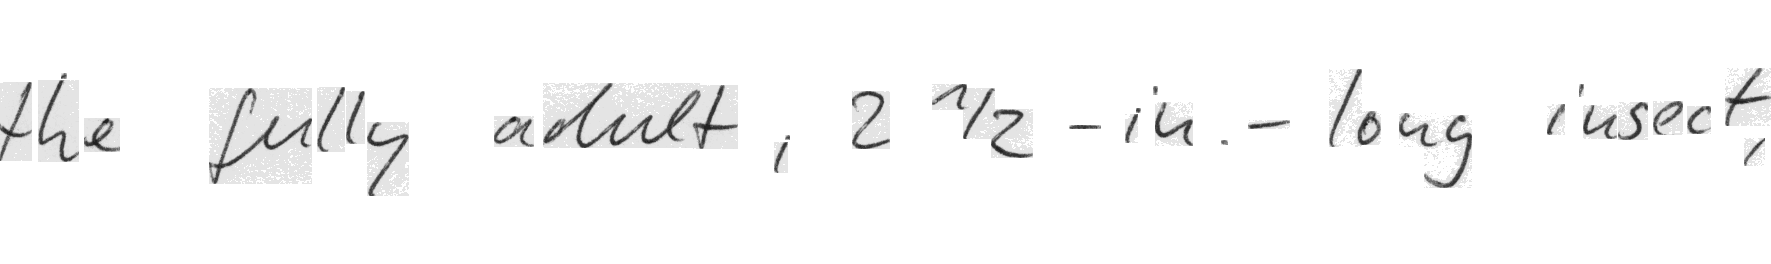 the fully adult, 2 1/2 -in. - long insect,